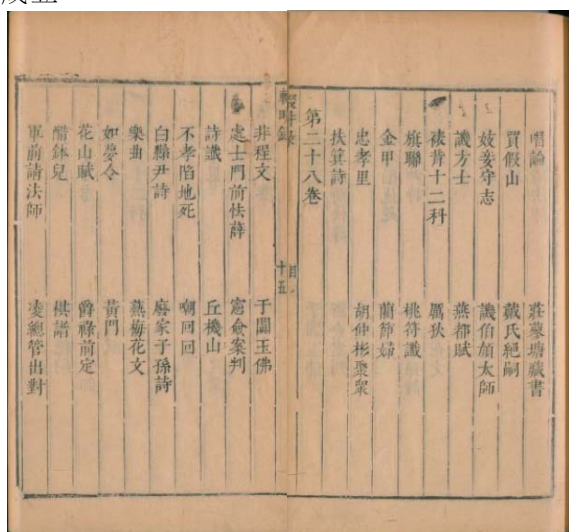 唱論　莊蓼塘藏書
買假山　戴氏絕嗣
妓妾守志　譏伯顏太師
譏方士　燕都賦
裱背十二科　厲狄
旗聯　桃符讖
金甲　蘭節婦
忠孝里　胡仲彬聚眾
扶箕詩
第二十八卷
輟耕錄　目　十五
非程文　于闐玉佛
處士門前怯薛　憲僉案判
詩讖　丘機山
不孝陷地死　嘲回回
白縣尹詩　廢家子孫詩
樂曲　爇梅花文
如夢令　黃門
花山賦　爵祿前定
醋鉢兒　棋譜
軍前請法師　凌總管出對